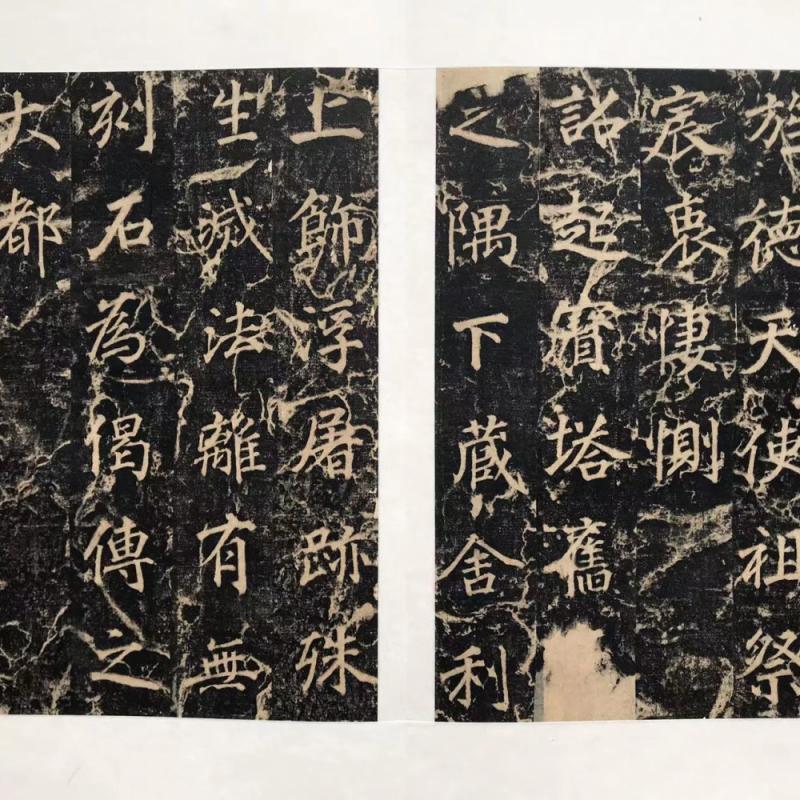 旌德天使祖祭
宸衷悽惻
詔起寶塔舊
之隅下藏舍利
上飾浮屠跡殊
生滅法離有無
刻石為偈傳之
大都